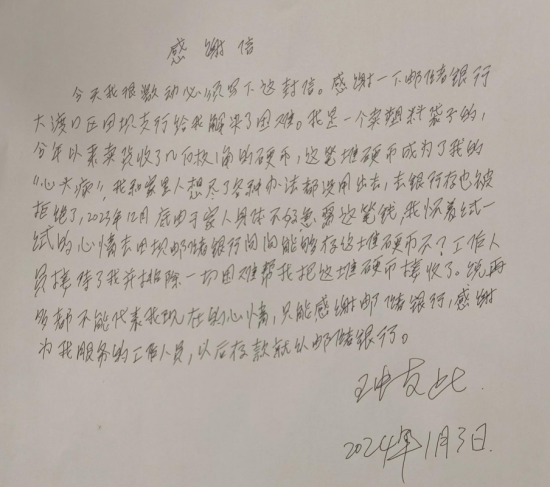 感谢信
今天我很激动必须写下这封信。感谢一下邮储银行
大渡口区田坝支行给我解决了困难。我是一个卖塑料袋子的,
今年以来卖货收了几万枚1角的硬币,这笔堆硬币成为了我的
“心头病”,我和家里人想尽了各种办法都没用出去,去银行存也被
拒绝了,2023年12月底由于家人身体不好急需这笔钱,我怀着试一
试的心情去田坝邮储银行问问能够存这堆硬币不?工作人
员接待了我并排除一切困难帮我把这堆硬币接收了。说再
多都不能代表我现在的心情,只能感谢邮储银行,感谢
为我服务的工作人员,以后存款就认邮储银行。
2024年1月3日